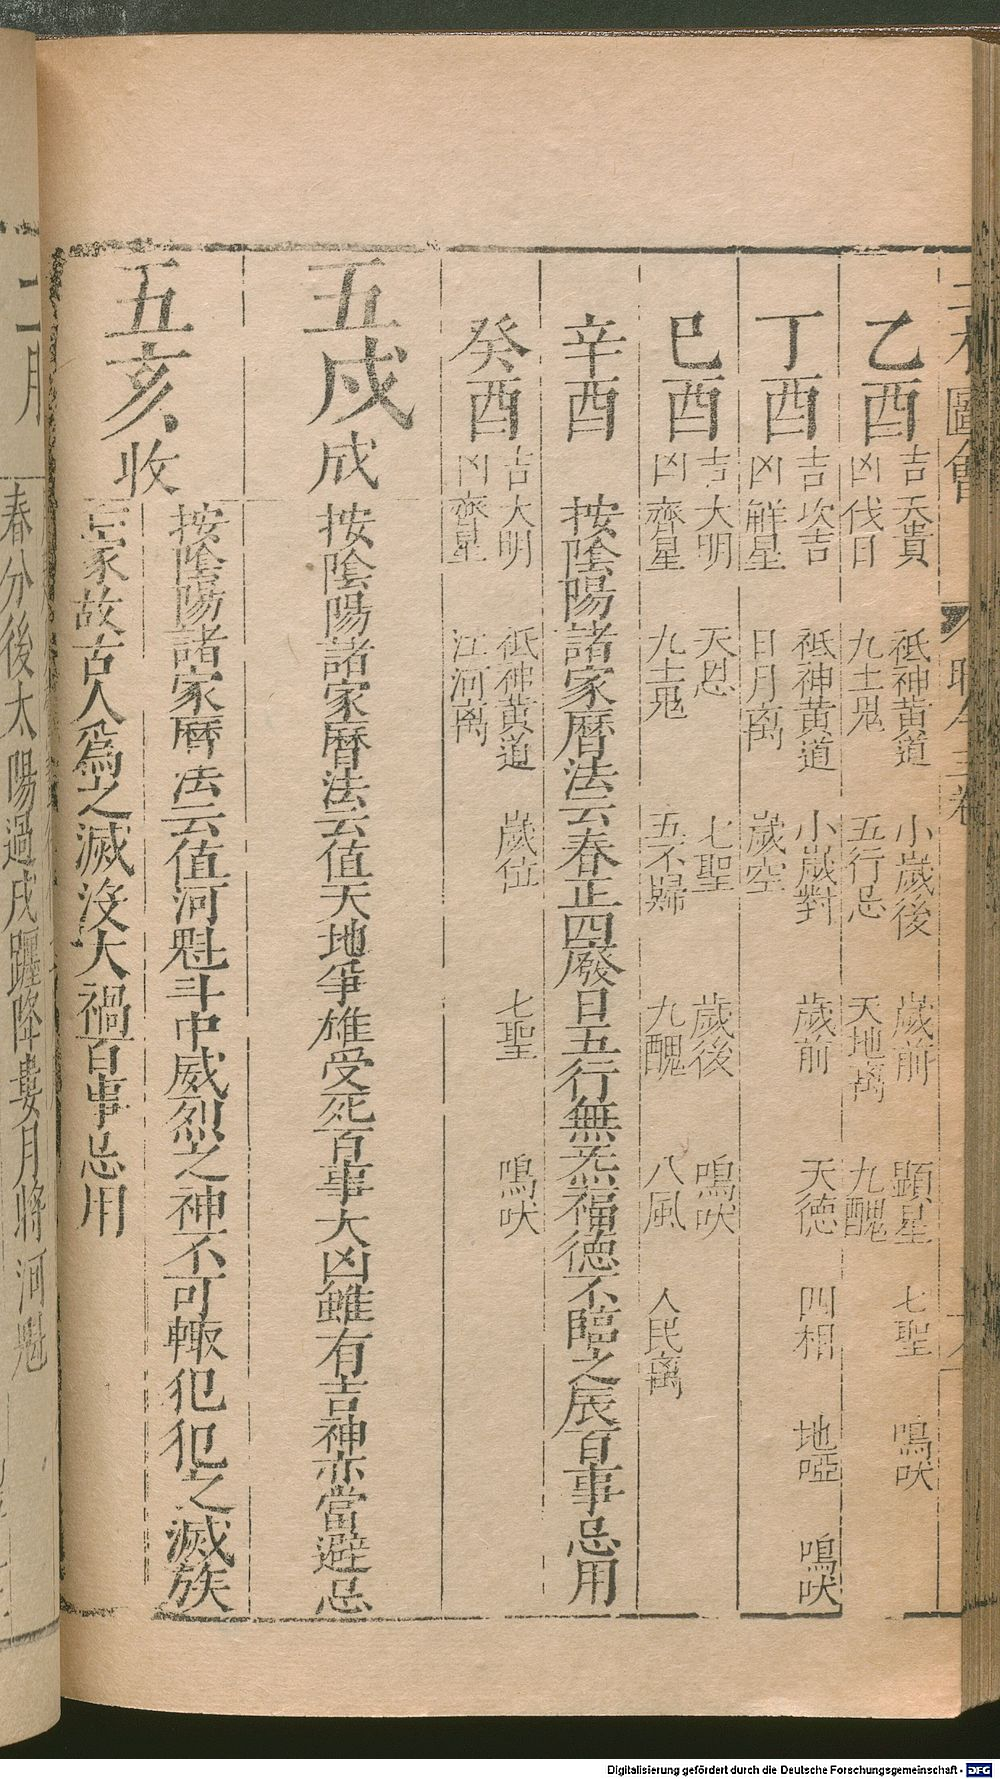 乙酉 吉 天貴 祗神黄道 小歲後 歲前 顯星 七聖 鳴吠
凶 伐日 九土鬼 五行忌 天地离 九醜
丁酉 吉 坎吉 祗神黄道 小歲對 歲前 天德 四相 地啞 鳴吠
凶 觧星 日月离 歲空
巳酉 吉 大明 天恩 七聖 歲後 鳴吠
凶 齊星 九土鬼 五不歸 九醜 八風 人民离
辛酉 按陰陽諸家曆法云春正四廢日五行無炁福德不臨之辰百事忌用
癸酉 吉 大明 祗神黄道 歲位 七聖 鳴吠
凶 齊星 江河离
五戌 成 按陰陽諸家曆法云值天地爭雄受死百事大凶雖有吉神亦當避忌
五亥 收 按陰陽諸家曆法云值河魁斗中威烈之神不可輙犯犯之滅族
亡家故古人爲之滅没大禍百事忌用
二月 春分後太陽過戌躔降婁月將河魁
Digitalisierung gefördert durch die Deutsche Forschungsgemeinschaft - DFG